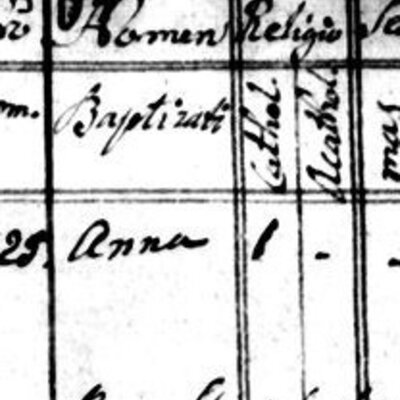 Nomen Religio
Baptizati Cathol. Acathol. mas
25. Anna 1 - -